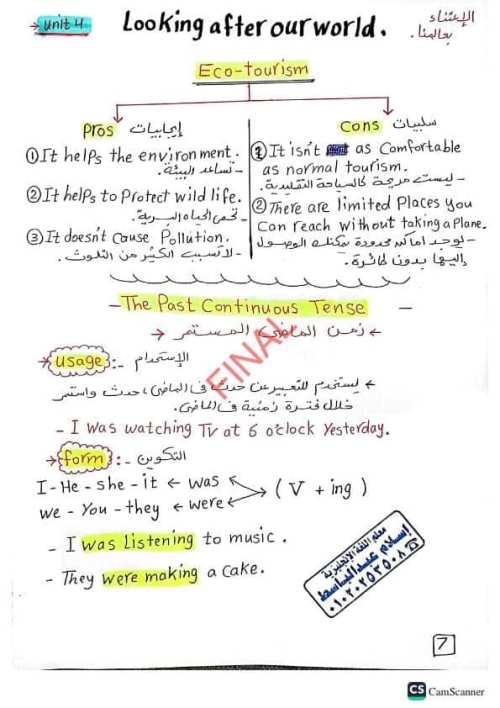 → unit 4
Looking after our world.
الإعتناء
بعالمنا.
Eco-tourism
Pros إيجابيات
① It helps the environment.
- تساعد البيئة.
② It helps to Protect wild life.
- تحمى الحياه البرية.
③ It doesn't Cause Pollution.
- لا تسبب الكثير من التلوث.
Cons سلبيات
① It isn't as Comfortable
as normal tourism.
- ليست مريحة كالسياحة التقليدية.
② There are limited Places you
Can reach without taking a Plane.
- يوجد أماكن محدودة يمكنك الوصول
إليها بدون طائرة.
- The Past Continuous Tense -
← زمن الماضى المستمر →
→ usage :- الإستخدام
← يستخدم للتعبير عن حدث فى الماضى، حدث واستمر
خلال فترة زمنية فى الماضى.
- I was watching TV at 6 o'clock Yesterday.
→ form :- التكوين
I - He - she - it ← was
we - You - they ← were
→ (V + ing)
- I was listening to music.
- They were making a cake.
FINAL
معلم اللغة الإنجليزية
إسلام عبدالباسط
٠١٠٢٠٢٥٣٥٠٨
7
CS CamScanner